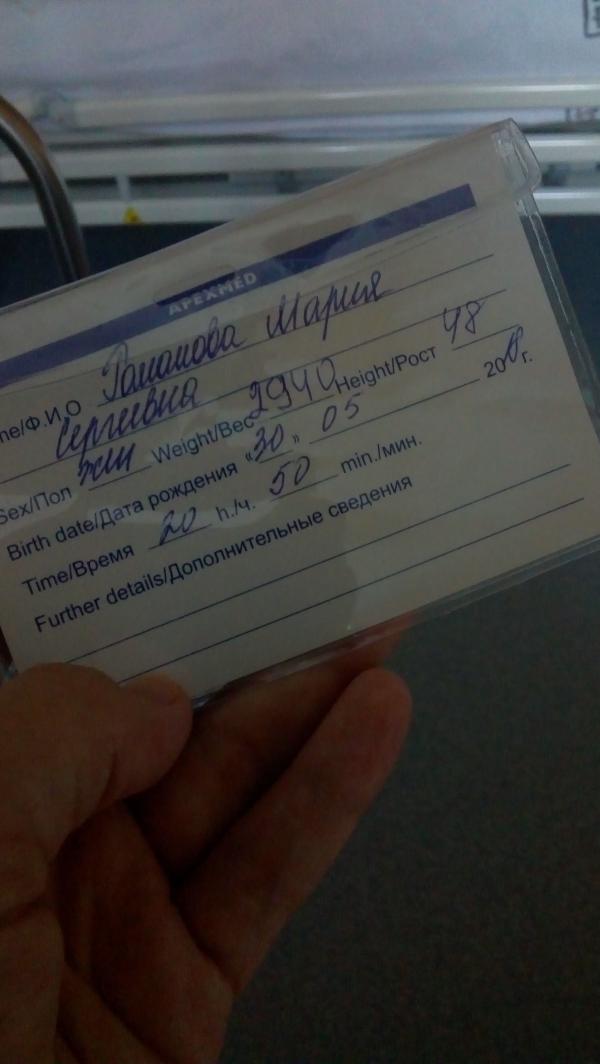 APEXMED
me/Ф.И.О Романова Мария
Сергеевна
Sex/Пол жен Weight/Вес 2940 Height/Рост 48
Birth date/Дата рождения «30» 05 20 г.
Time/Время 20 h./ч. 50 min./мин.
Further details/Дополнительные сведения